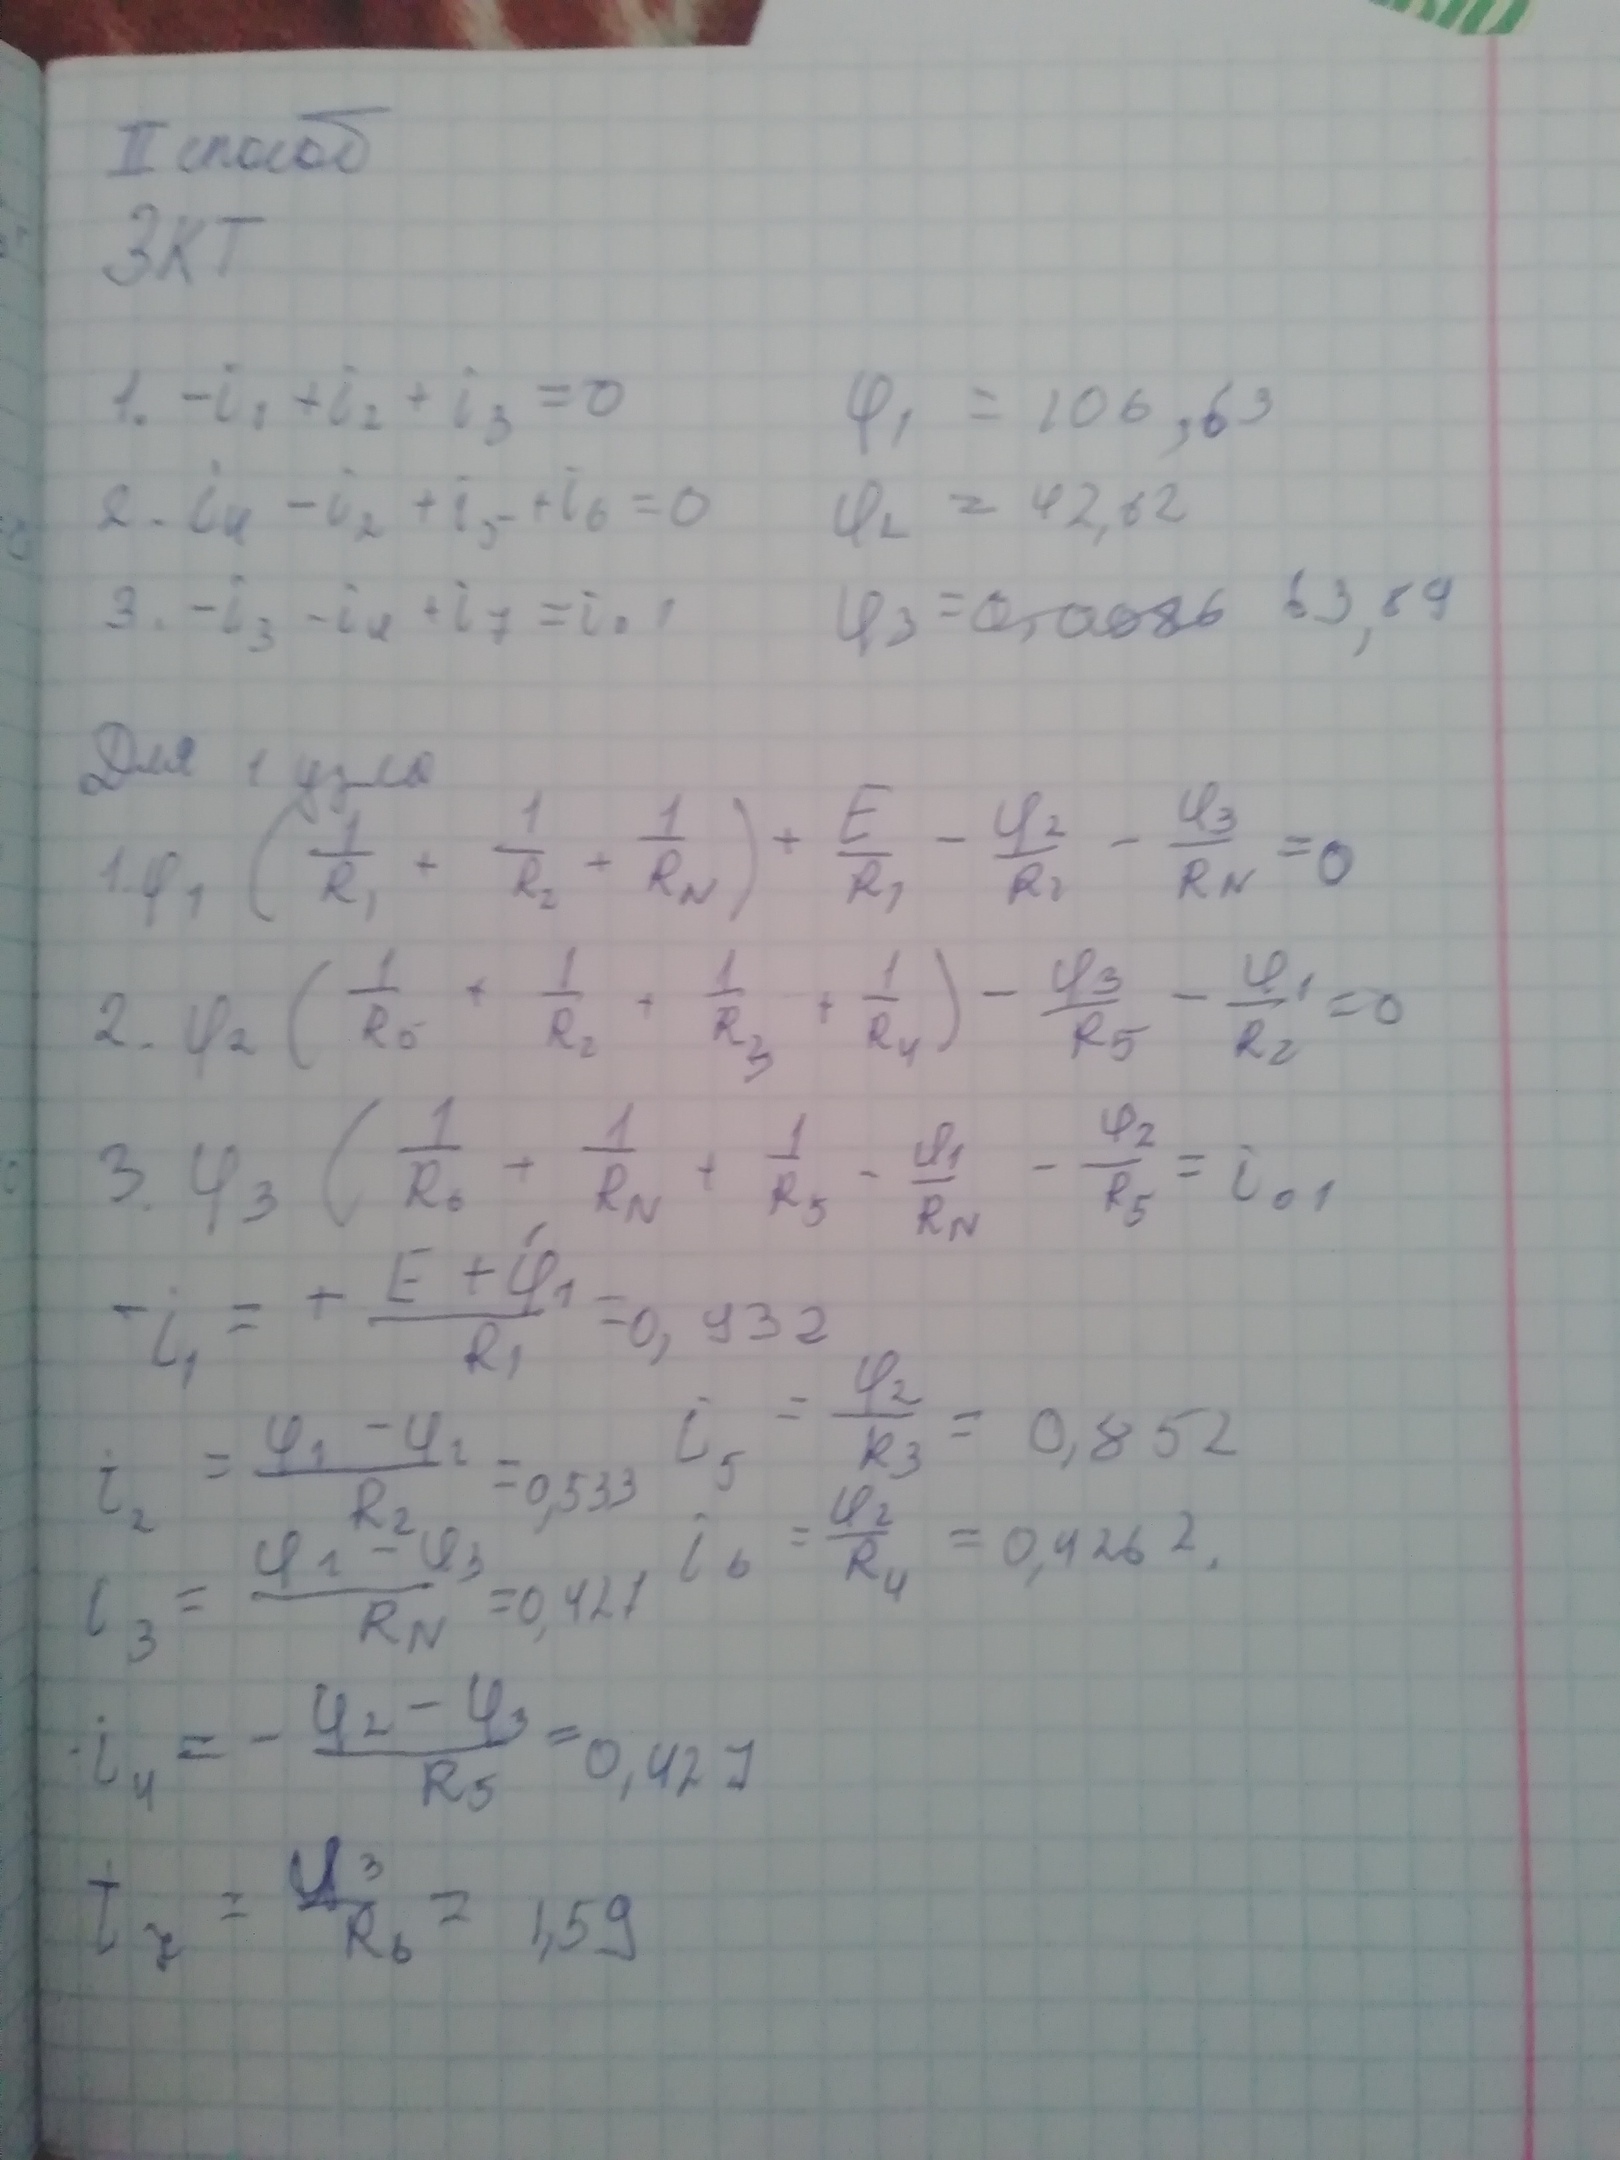 II способ
ЗКТ
1. -i₁ + i₂ + i₃ = 0 φ₁ = 106,63
2. i₄ - i₂ + i₅ + i₆ = 0 φ₂ = 42,62
3. -i₃ - i₄ + i₇ = i₀₁ φ₃ = 63,89
Для 1 узла
1. φ₁ (1/R₁ + 1/R₂ + 1/R_N) + E/R₁ - φ₂/R₂ - φ₃/R_N = 0
2. φ₂ (1/R₅ + 1/R₂ + 1/R₃ + 1/R₄) - φ₃/R₅ - φ₁/R₂ = 0
3. φ₃ (1/R₆ + 1/R_N + 1/R₅ - φ₁/R_N - φ₂/R₅ = i₀₁
-i₁ = + (E + φ₁)/R₁ = 0,932
i₂ = (φ₁ - φ₂)/R₂ = 0,533 i₅ = φ₂/R₃ = 0,852
i₃ = (φ₁ - φ₃)/R_N = 0,427 i₆ = φ₂/R₄ = 0,4262.
i₄ = - (φ₂ - φ₃)/R₅ = 0,427
i₇ = φ₃/R₆ = 1,59